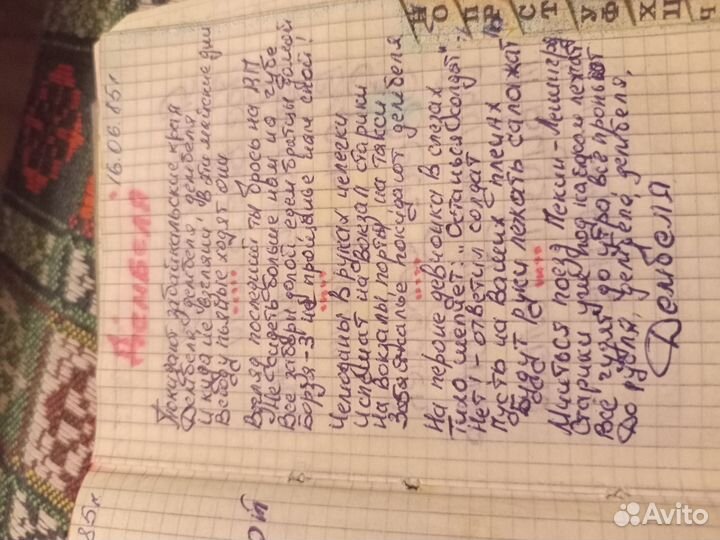 Дембеля
16.06.85г
Покидают забайкальские края
Дембеля, дембеля, дембеля
И куда не взгляни, в эти майские дни
Всюду пьяные ходят они
Взгляд последний ты брось на КПП
Не сидеть больше нам на губе
Все заборы долой едем братцы домой
Борзя-3 на прощанье нам спой!
Чемоданы в руках нелегки
И спешат на вокзал старики
На вокзалы, порты, на такси
Забайкалье покидают дембеля
На пероне девчонка в слезах
Тихо шепчет: "Останься солдат"
Нет! - ответил солдат
Пусть на ваших плечах
Будут руки лежать салажат
Мчиться поезд Пекин-Ленинград
Старики уже под кайфом лежат
Всё гудят до утра всё пропьют
До рубля, дембеля, дембеля,
Дембеля
85г
ой
Н
О
П
Р
С
Т
У
Ф
Х
Ц
Ч
Avito